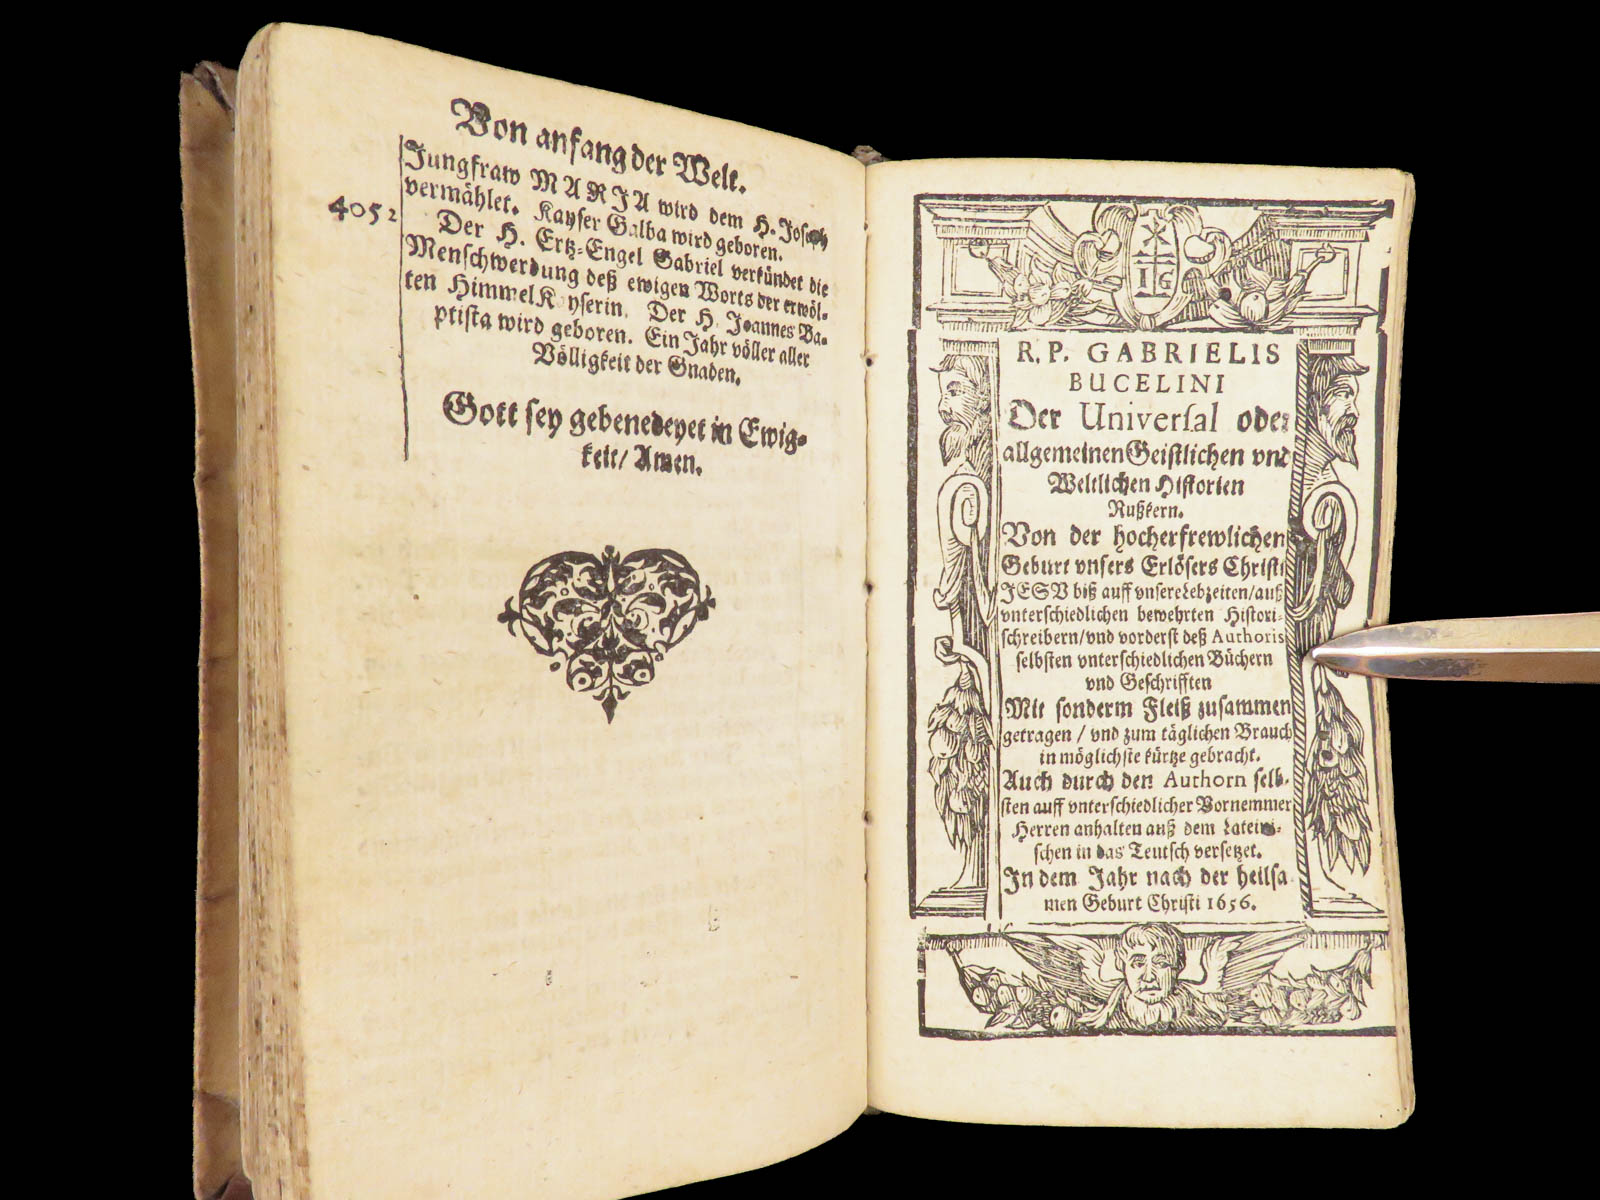 Von anfang der Welt.
Jungfraw MARJA wird dem H. Joseph
4052
vermählet. Kayser Galba wird geboren.
Der H. Ertz-Engel Gabriel verkündet die
Menschwerdung deß ewigen Worts der erwöl-
ten HimmelKayserin. Der H. Joannes Ba-
ptista wird geboren. Ein Jahr völler aller
Völligkeit der Gnaden.
Gott sey gebenedeyet in Ewig-
keit/ Amen.
IG
R. P. GABRIELIS
BUCELINI
Der Universal oder
allgemeinen Geistlichen vnd
Weltlichen Historien
Nußkern.
Von der hocherfrewlichen
Geburt vnsers Erlösers Christi
JESV biß auff vnsere Lebzeiten/auß
vnterschiedlichen bewehrten Histori-
schreibern/vnd vorderst deß Authoris
selbsten vnterschiedlichen Büchern
vnd Geschrifften
Mit sonderm Fleiß zusammen
getragen / vnd zum täglichen Brauch
in möglichste kürtze gebracht.
Auch durch den Authorn selb-
sten auff vnterschiedlicher Vornemmer
Herren anhalten auß dem Lateini-
schen in das Teutsch versetzet.
In dem Jahr nach der heilsa-
men Geburt Christi 1656.